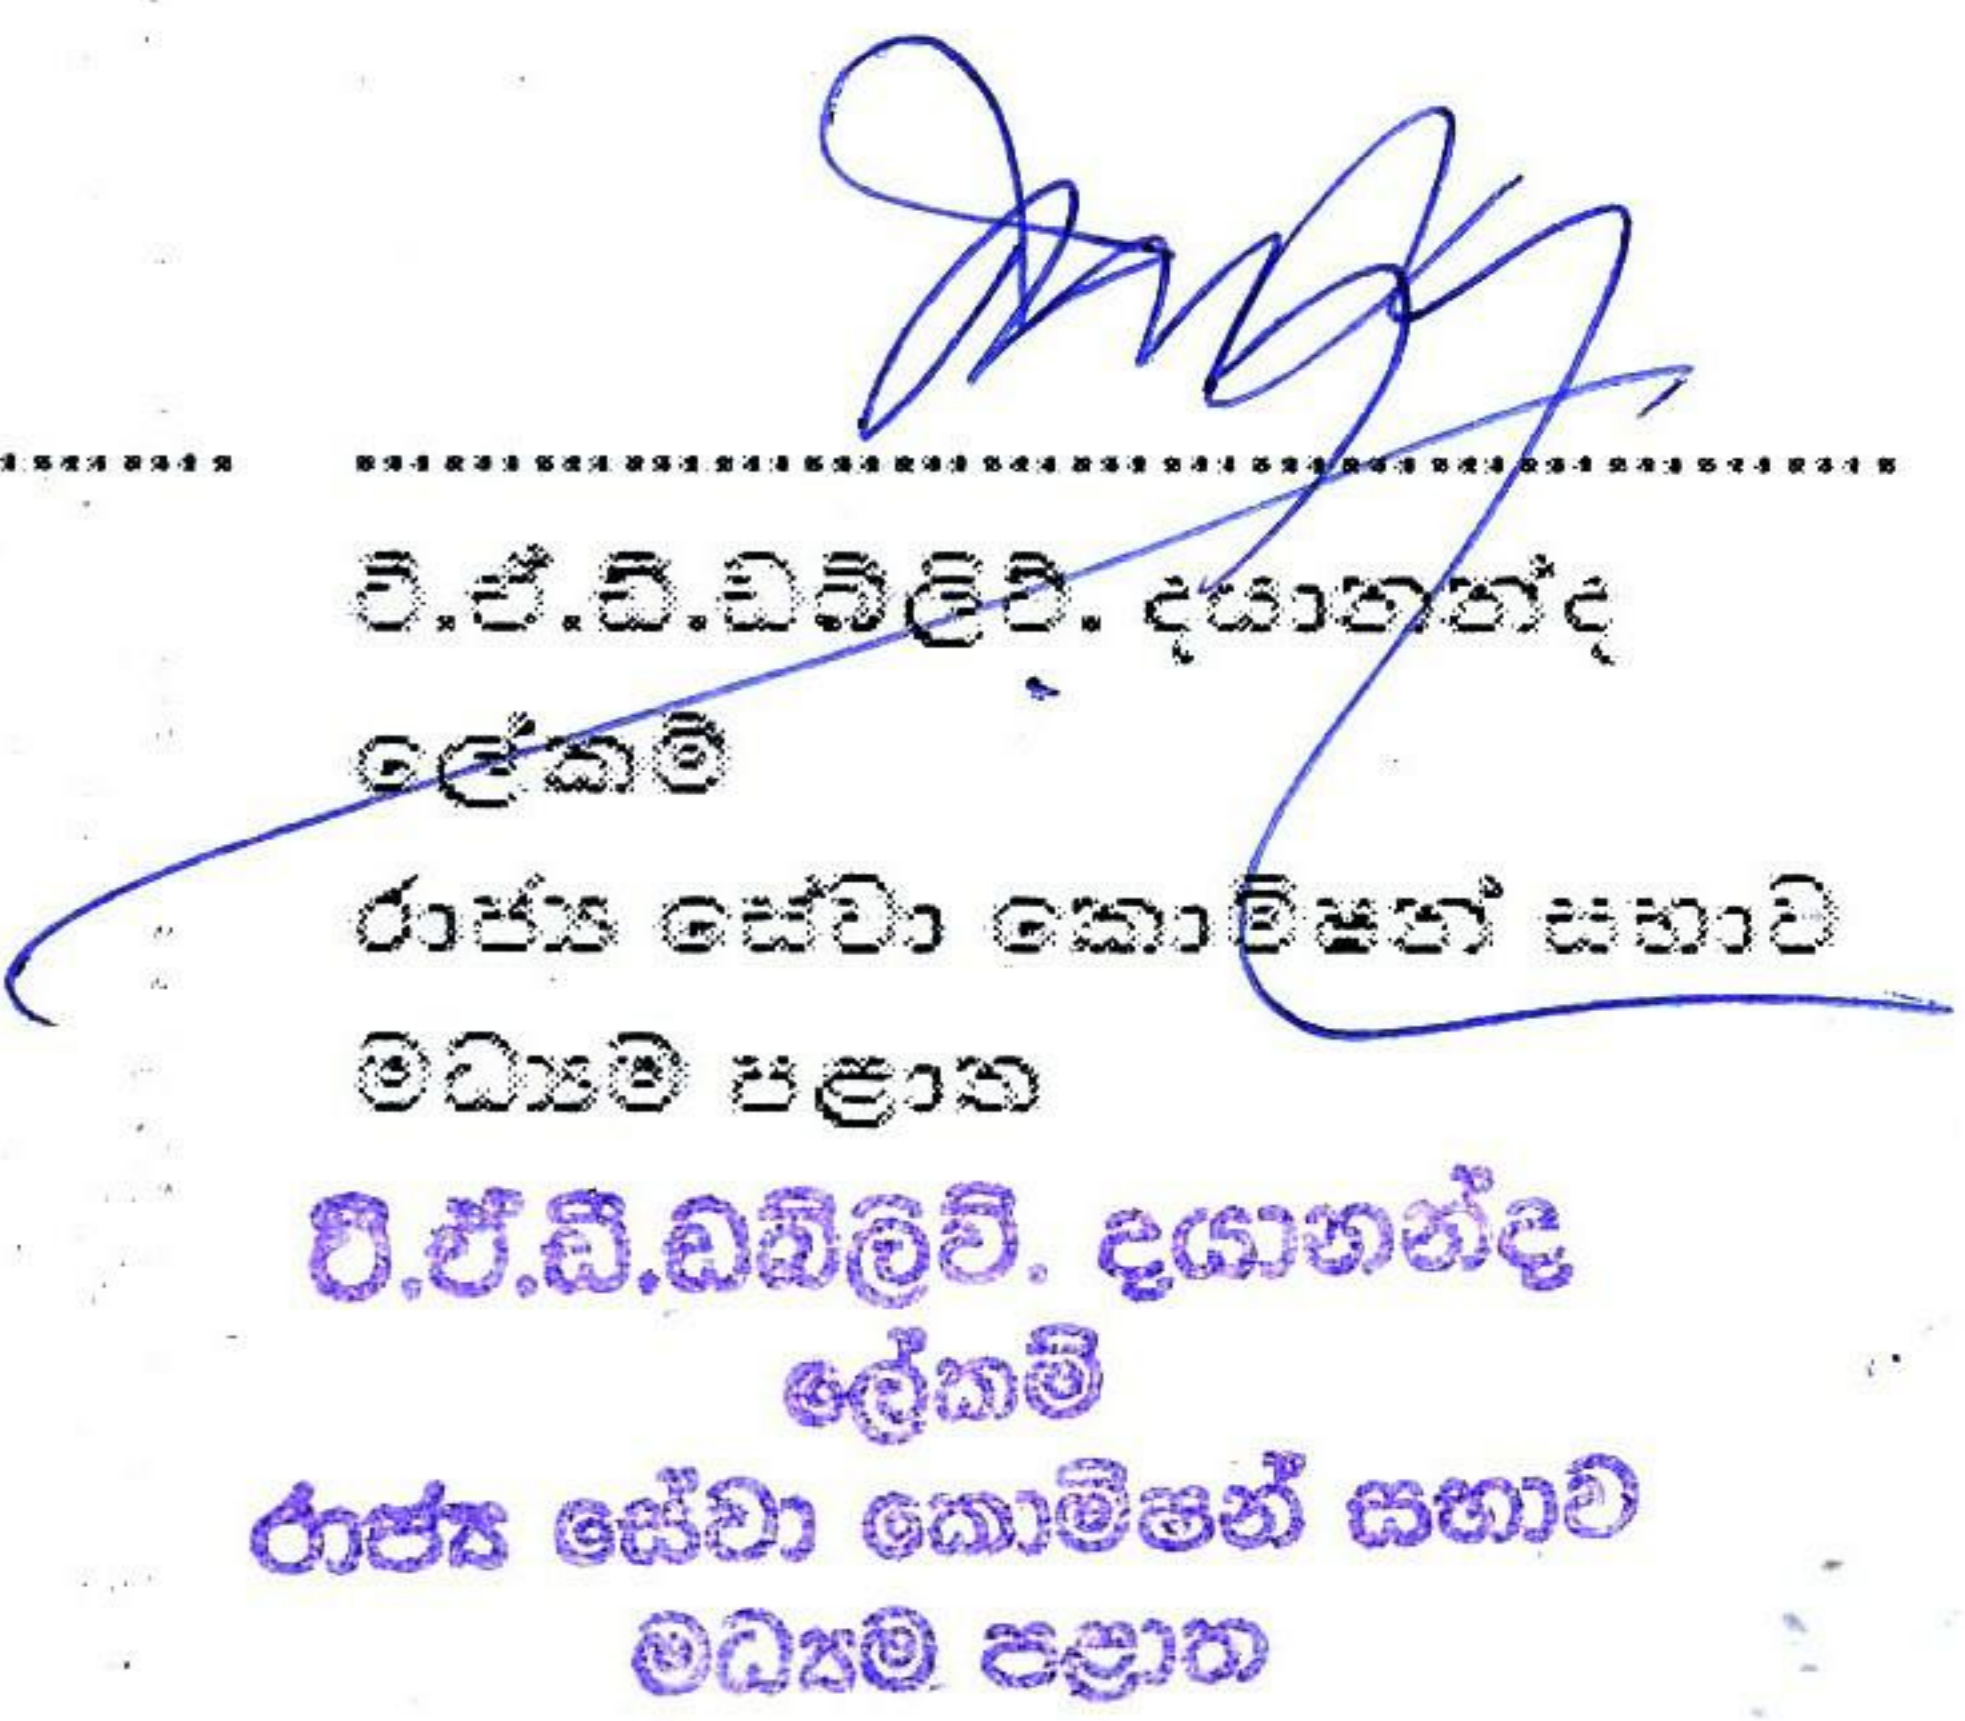 වී.ඒ.ඩී.ඩබ්ලිව්. දයානන්ද
ලේකම්
රාජ්‍ය සේවා කොමිෂන් සභාව
මධ්‍යම පළාත
වී.ඒ.ඩී.ඩබ්ලිව්. දයානන්ද
ලේකම්
රාජ්‍ය සේවා කොමිෂන් සභාව
මධ්‍යම පළාත